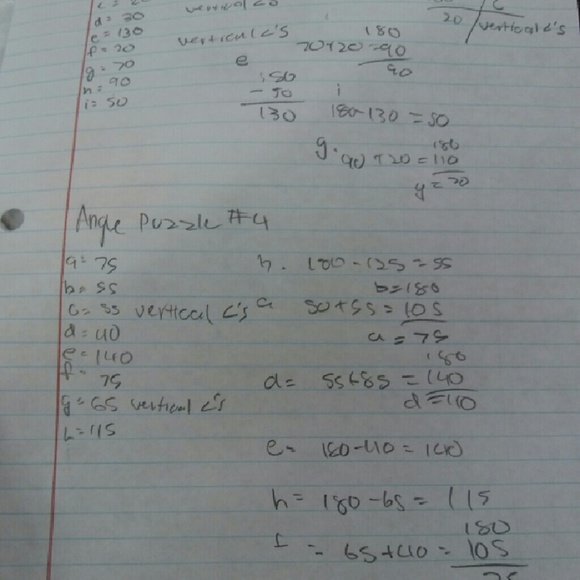 d = 20
vertical <'s
20 / vertical <'s
e = 130
f = 20
g = 70
h = 90
i = 50
vertical <'s
180
70+20=90
90
e
180
- 50
130
i
180-130 = 50
g. 90+20 = 110
180
y = 70
Angle Puzzle #4
a = 75
b = 55
c = 55 vertical <'s
d = 40
e = 140
f = 75
g = 65 vertical <'s
h = 115
b. 180-125 = 55
b = 180
a 50+55 = 105
a = 75
180
d = 55+85 = 140
d = 40
e = 180-40 = 140
h = 180-65 = 115
180
f = 65+40 = 105
75